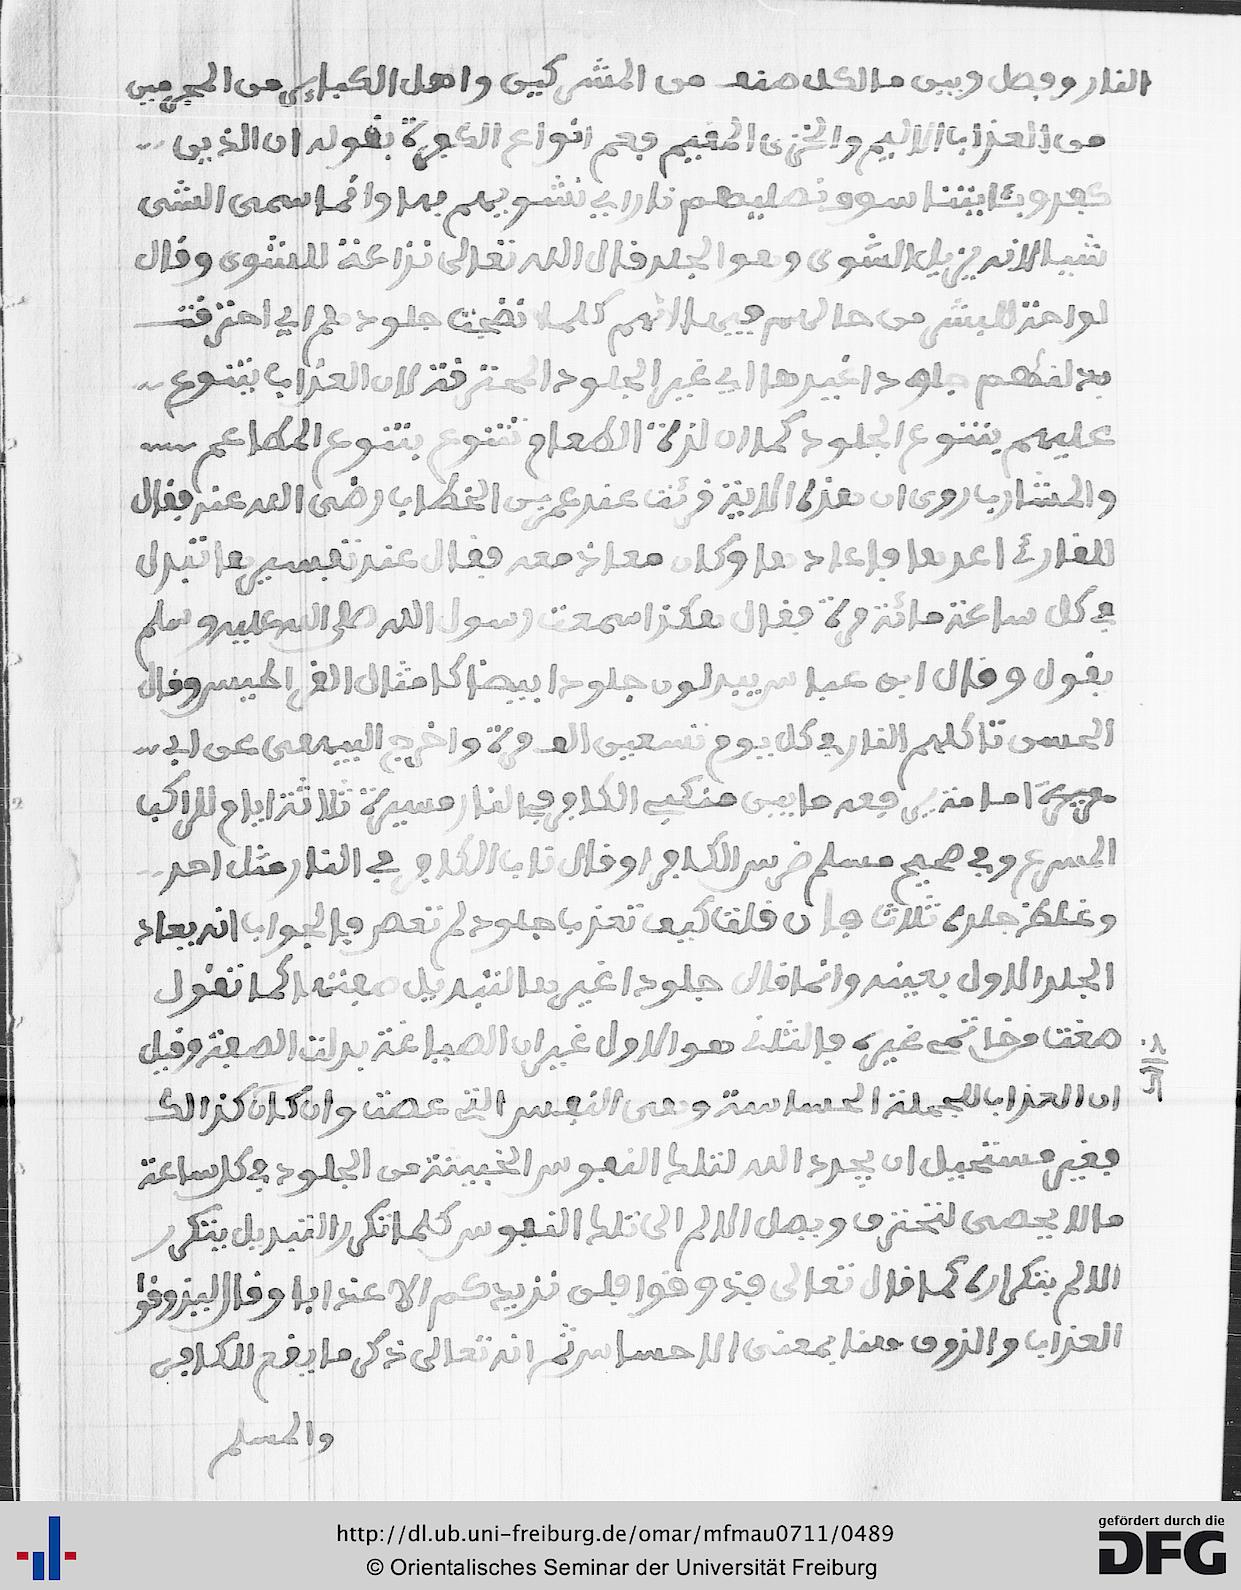 النار وفصل وبين ما لكل صنف من المشركين واهل الكتاب من المجرمين
من العذاب الاليم والخزي المقيم فعم انواع الكفرة بقوله ان الذين
كفروا بئايتنا سوف نصليهم نارا اي نشويهم بها وانما سمى الشى
شيا لانه يزيل الشوى وهو الجلد قال الله تعالى نزاعة للشوى وقال
لواحة للبشر من حالهم فيها انهم كلما نضجت جلودهم اي احترقت
بدلنهم جلودا غيرها اي غير الجلود المحترقة لان العذاب يتنوع
عليهم بتنوع الجلود كما ان لذة الطعام تتنوع بتنوع المطاعم
والمشارب روى ان هذه الاية قرئت عند عمر بن الخطاب رضى الله عنه فقال
للقارئ اعدها فاعادها وكان معاذ معه فقال عند تفسيرها تبدل
في كل ساعة مائة مرة فقال هكذا سمعت رسول الله صلى الله عليه وسلم
يقول وقال ابن عباس يبدلون جلودا بيضا كامثال القراطيس وقال
الحسن تاكلهم النار في كل يوم سبعين الف مرة واخرج البيهقى عن ابي
امامة يرفعه ما بين منكبي الكافر في النار مسيرة ثلاثة ايام للراكب
المسرع وفي صحيح مسلم ضرس الكافر او قال ناب الكافر في النار مثل احد
وغلظ جلده ثلاث فان قلت كيف تعذب جلود لم تعص فالجواب انه يعاد
الجلد الاول بعينه وانما قال جلودا غيرها لتبديل صفتها كما تقول
صغت من خاتمي غيره فالثاني هو الاول غير ان الصياغة بدلت الصفة وقيل
ان العذاب للجملة الحساسة وهى النفس التي عصت وان كان كذالك
فغير مستحيل ان يجرد الله لتلك النفوس الخبيثة من الجلود في كل ساعة
ما لا يحصى لتحترق ويصل الالم الى تلك النفوس كلما تكرر التبديل يتكرر
الالم بتكراره كما قال تعالى فذوقوا فلن نزيدكم الا عذابا وقال ليذوقوا
العذاب والذوق هنا بمعنى الاحساس ثم انه تعالى ذكر ما يقع للكافر
والمسلم
http://dl.ub.uni-freiburg.de/omar/mfmau0711/0489
© Orientalisches Seminar der Universität Freiburg
gefördert durch die
DFG